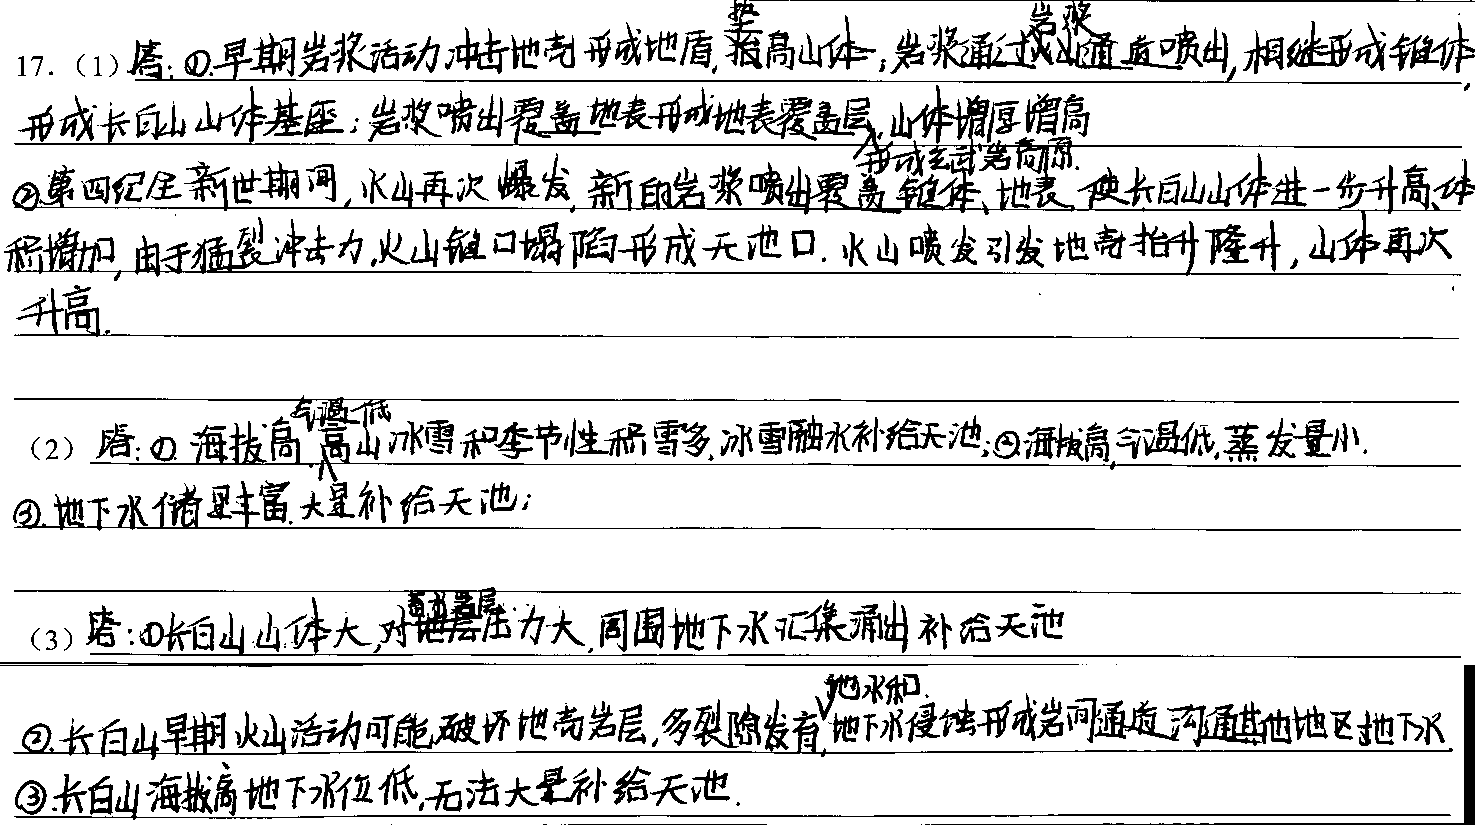 17.（1）答:①.早期岩浆活动冲击地壳形成地盾,抬高山体,岩浆通过岩浆通道喷出,相继形成锥体,
形成长白山山体基座;岩浆喷出覆盖地表形成地表覆盖层,形成玄武岩高原.山体增厚增高
②.第四纪至新世期间,火山再次爆发,新的岩浆喷出覆盖锥体、地表,使长白山山体进一步升高、体
积增加,由于猛裂冲击力,火山锥口塌陷形成天池口.火山喷发引发地壳抬升隆升,山体再次
升高.
（2）答:①海拔高,气温低高山冰雪和季节性积雪多,冰雪融水补给天池;②海拔高,气温低,蒸发量小.
③.地下水储量丰富,大量补给天池;
（3）答:①长白山山体大,对压力大,周围地下水汇集涌出补给天池
②.长白山早期火山活动可能破坏地壳岩层,多裂隙发育,地水和地下水侵蚀形成岩间通道沟通其他地区地下水.
③.长白山海拔高地下水位低,无法大量补给天池.